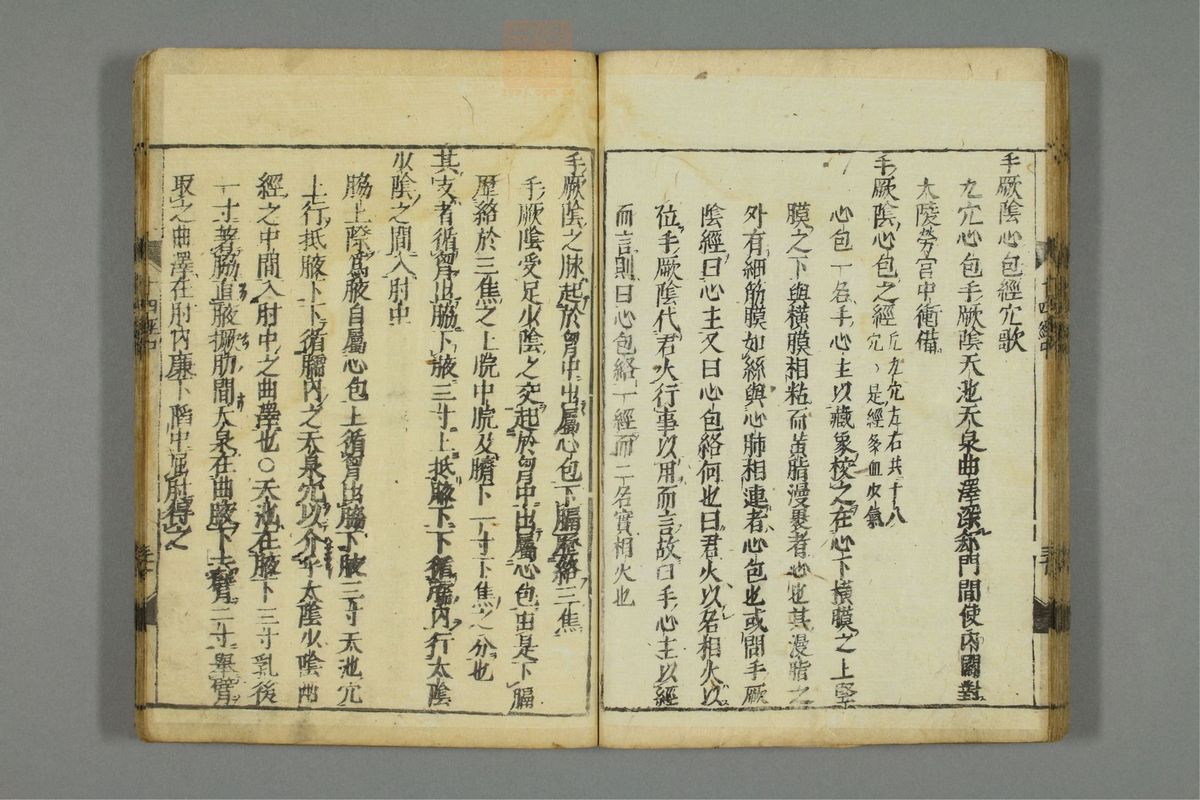 手厥陰心包經穴歌
九穴心包手厥陰天池天泉曲澤深郄門間使內關對
太陵勞宮中衝備
手厥陰心包之經
凡九穴左右共十八
穴○是經多血少氣
心包一名手心主以藏象校之在心下橫膜之上竪
膜之下與橫膜相粘而黃脂漫裹者心也其漫脂之
外有細筋膜如絲與心肺相連者心包也或問手厥
陰經曰心主又曰心包絡何也曰君火以名相火以
位手厥陰代君火行事以用而言故曰手心主以經
而言則曰心包絡一經而二名實相火也
手厥陰之脉起於胷中出屬心包下膈歷絡三焦
手厥陰受足少陰之交起於胷中出屬心包由是下膈
歷絡於三焦之上脘中脘及臍下一寸下焦之分也
其支者循胷出脇下腋三寸上抵腋下下循臑內行太陰
少陰之間入肘中
脇上際爲腋自屬心包上循胷出脇下腋三寸天池穴
上行抵腋下下循臑內之天泉穴以介乎太陰少陰兩
經之中間入肘中之曲澤也○天池在腋下三寸乳後
一寸著脇直腋撅肋間天泉在曲腋下去臂二寸舉臂
取之曲澤在肘內廉下陷中屈肘得之
十四經中